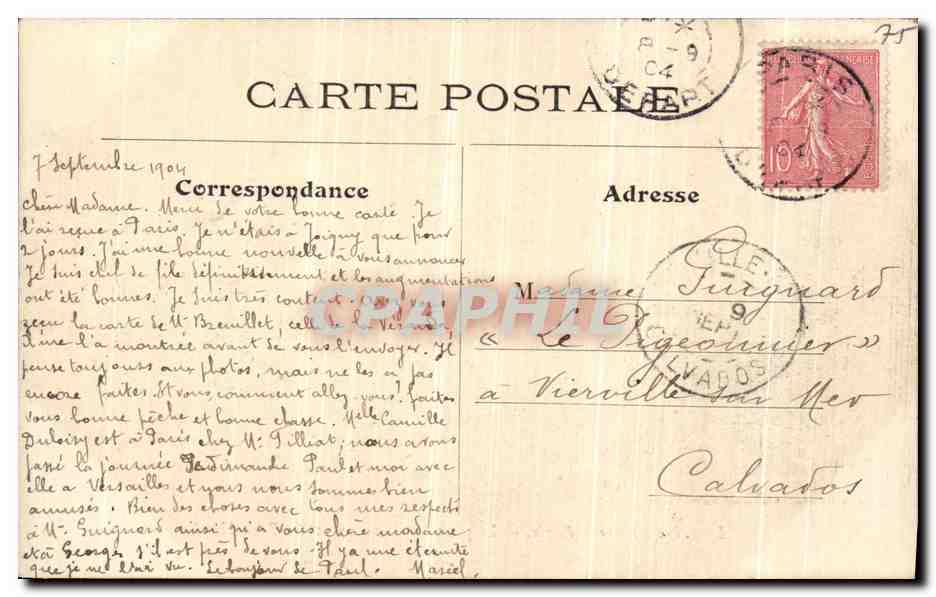 75
8 - 9
04
DEPART
PARIS
FRANÇAISE
10
CARTE POSTALE
7 Septembre 1904
Correspondance
Adresse
Chère Madame. Merci de votre bonne carte. Je
l'ai reçue à Paris. Je n'étais à Joigny que pour
2 jours. J'ai une bonne nouvelle à vous annoncer
Je suis chef de file définitivement et les augmentations
ont été bonnes. Je suis très content. Avez vous
reçu la carte de Mr Breuillet, celle de la
il me l'a montrée avant de vous l'envoyer. Il
pense toujours aux photos, mais ne les a pas
encore faites. Et vous comment allez vous? faites
vous bonne pêche et bonne chasse. Melle Camille
est à Paris chez Mr Pilliat; nous avons
passé la journée Ferdinande Paul et moi avec
elle a Versailles et nous nous sommes bien
amusés. Bien des choses avec tous mes respects
à Mr Guignard ainsi qu'a vous chère madame
et à Georges s'il est près de vous. Il y a une éternité
que je ne l'ai vu. Le bonjour de Paul. Marcel
Madame Guignard
"Le Pigeonnier"
à Vierville sur Mer
Calvados
VILLE
9
SEPT
CALVADOS
CPAPHIL